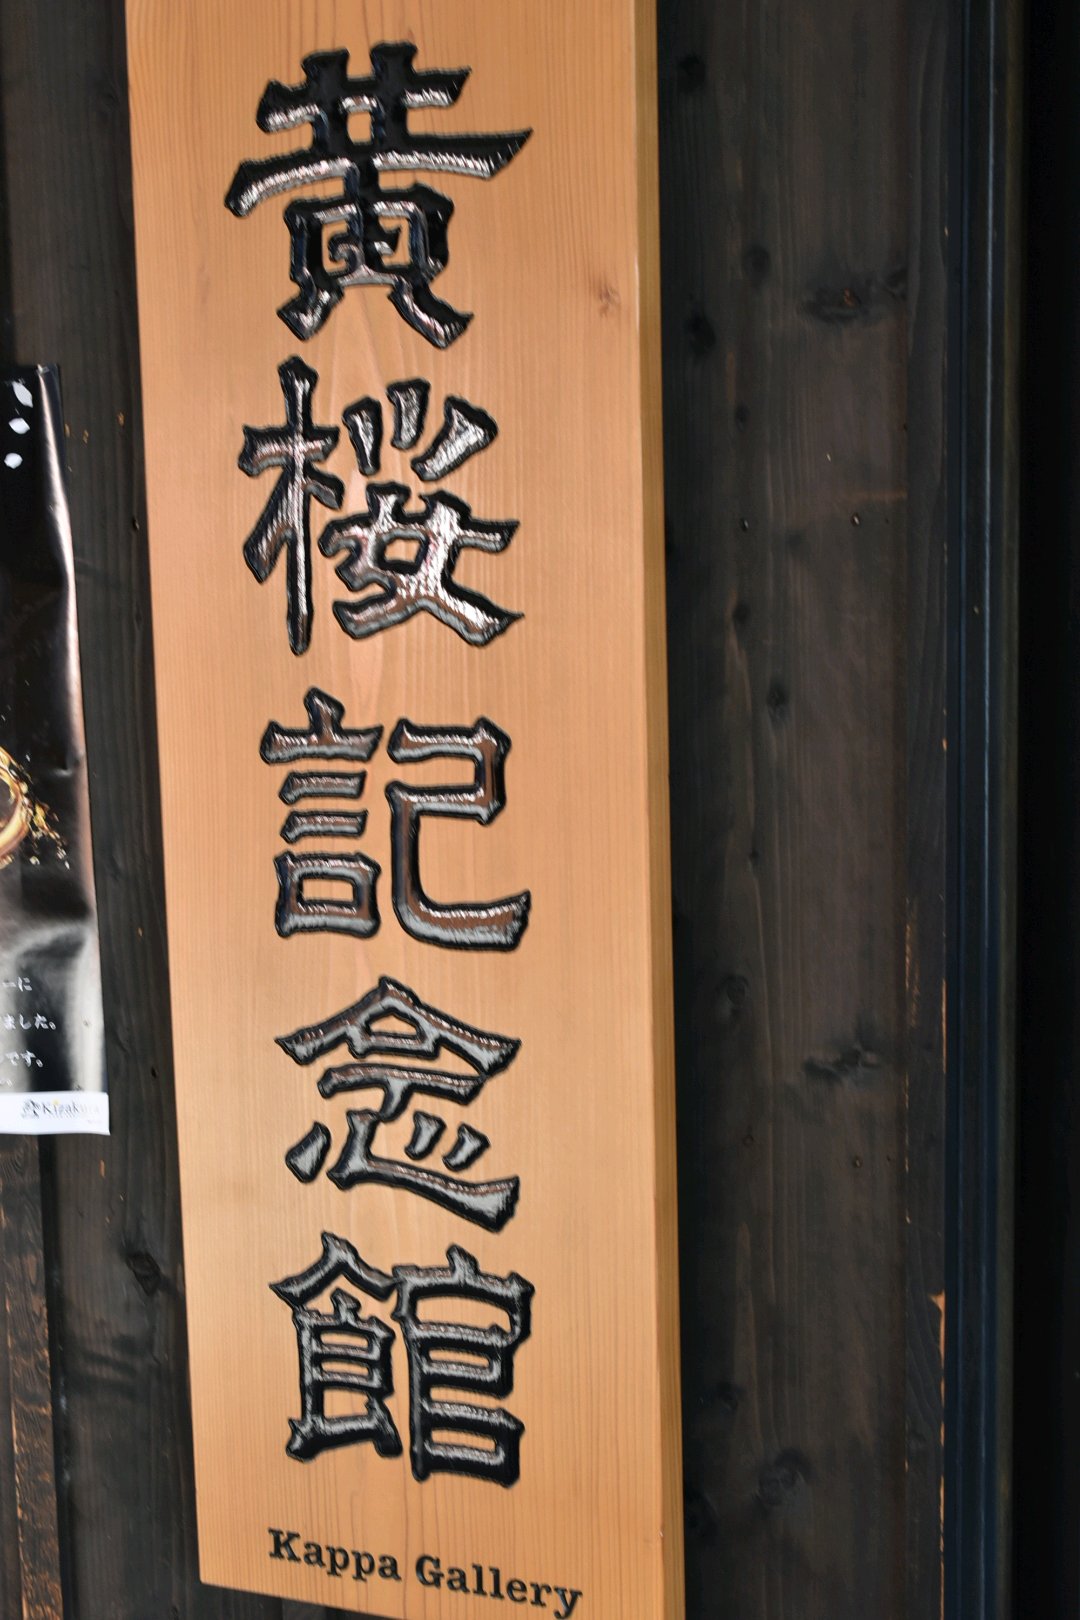 黄桜記念館
Kappa Gallery
ーに
ました。
です。
Kizakura